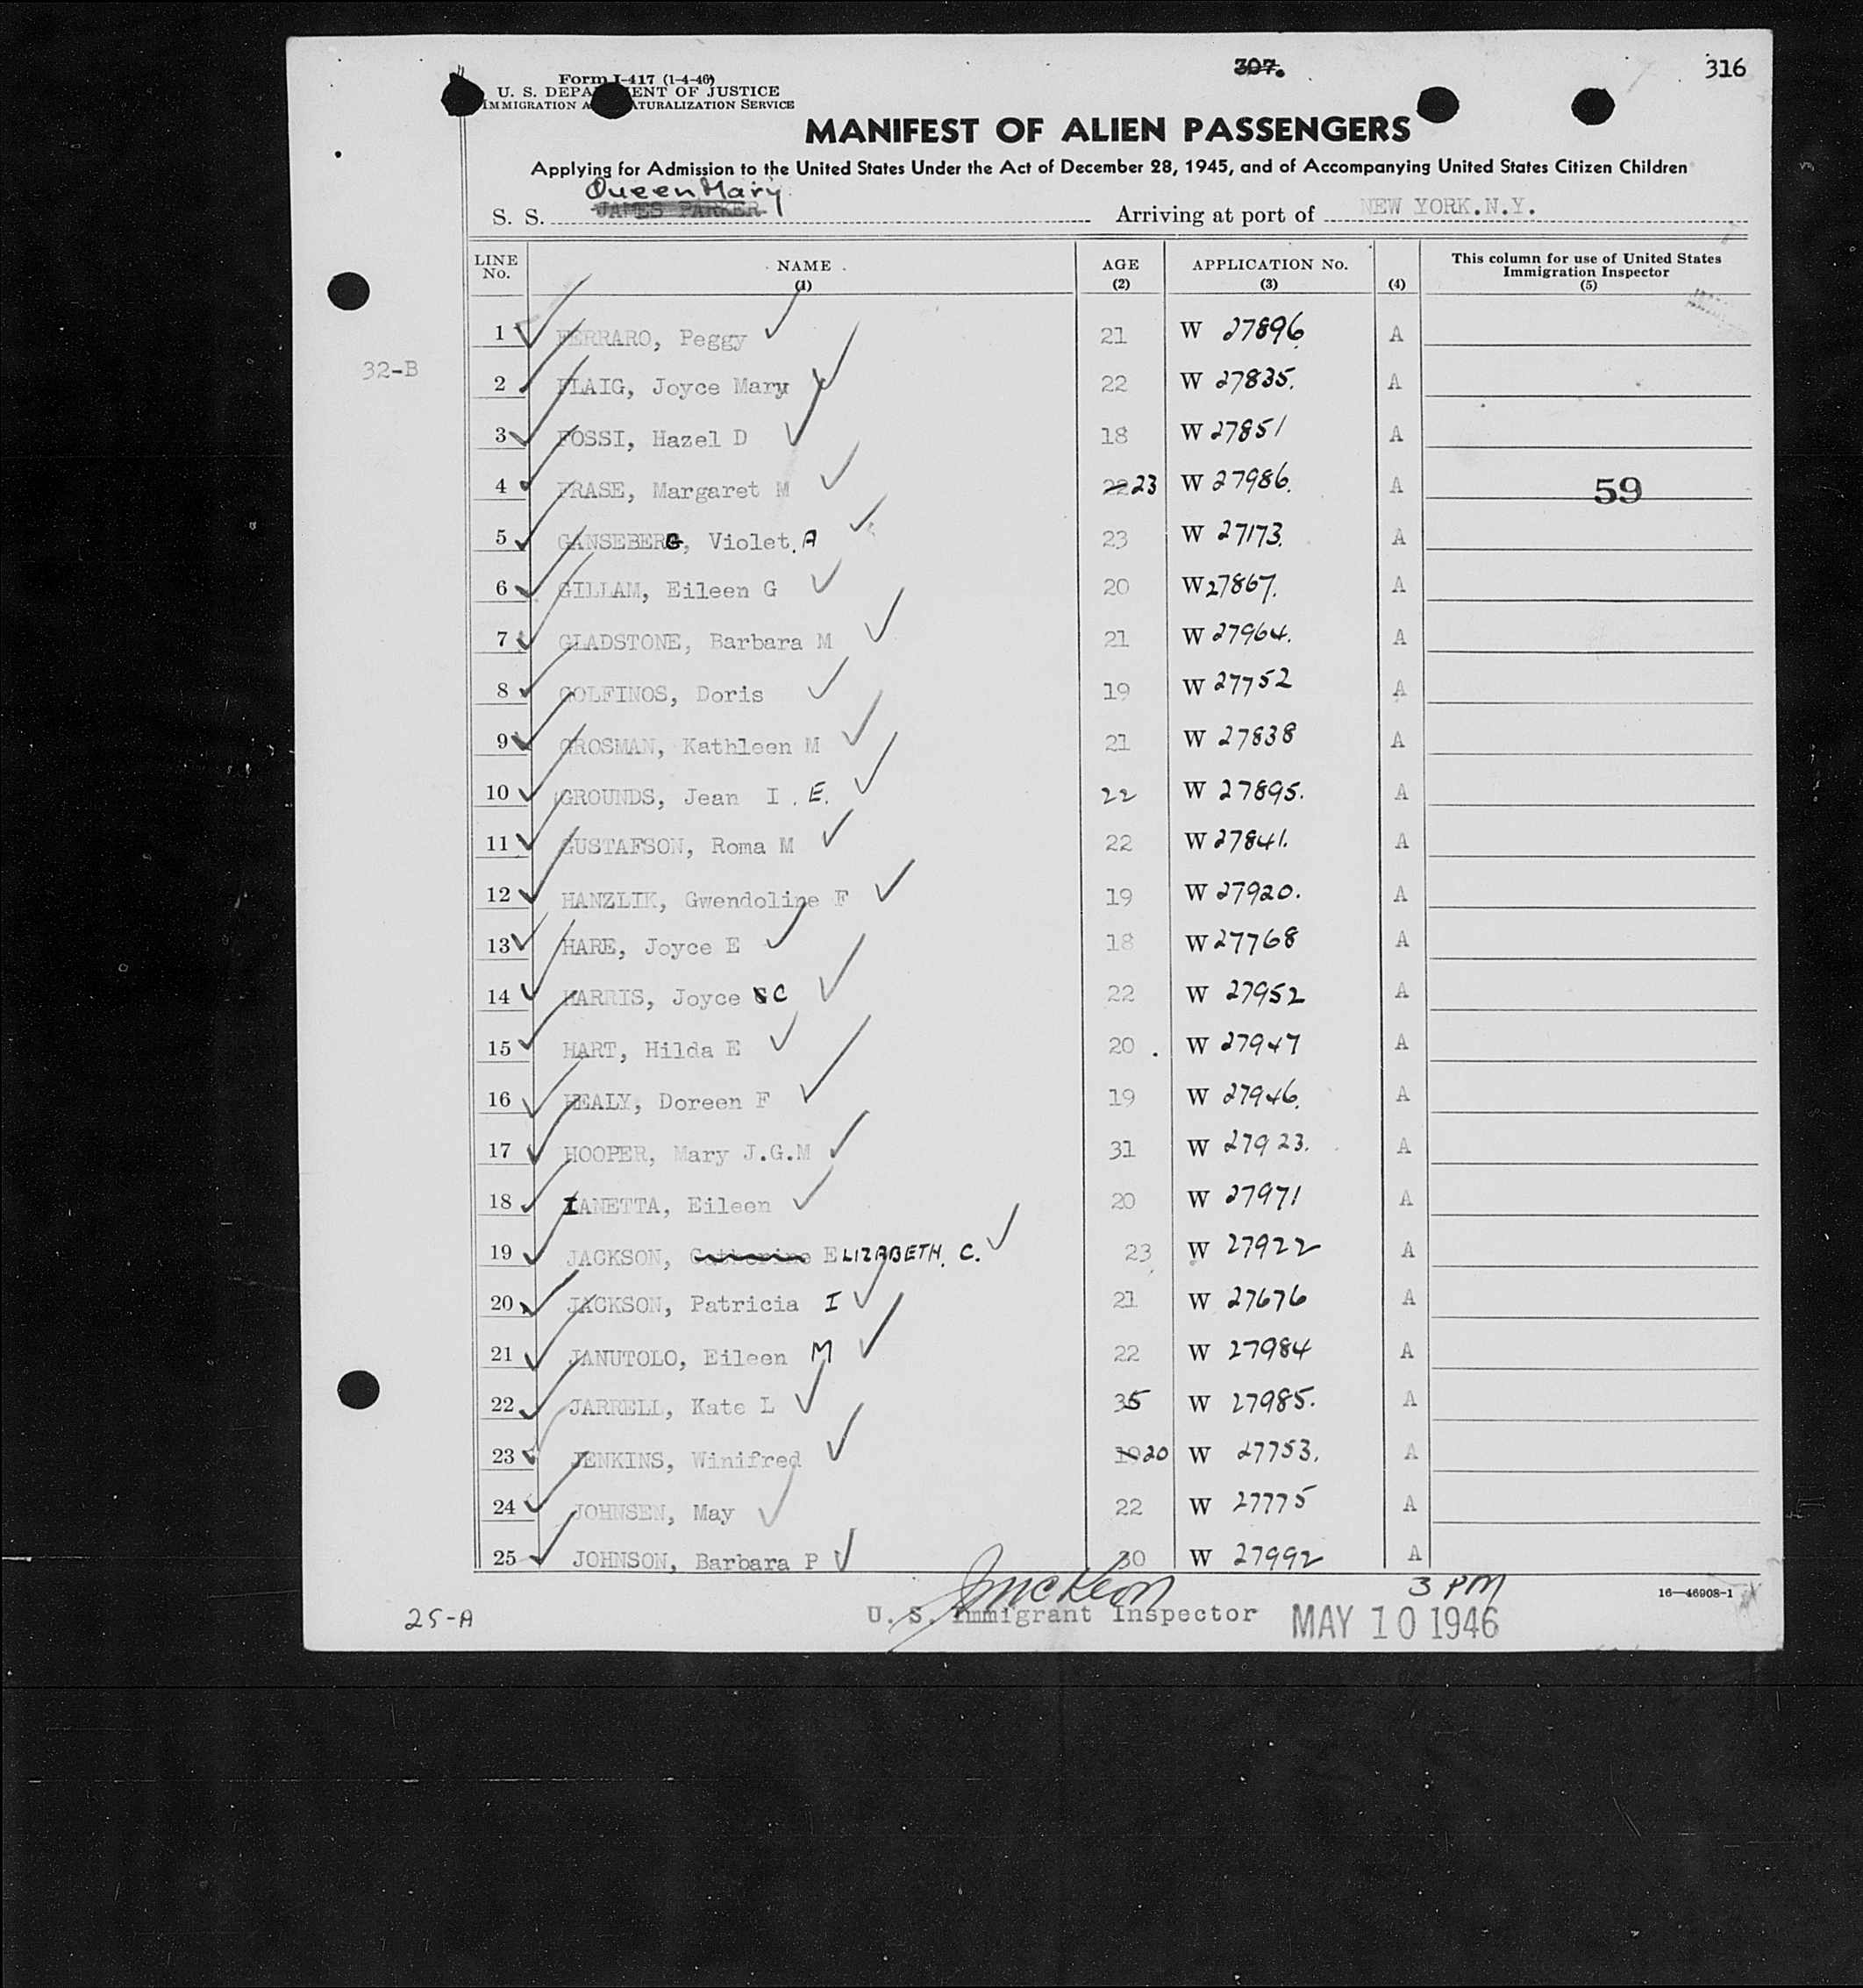 307.
316
Form I-417 (1-4-46)
U. S. DEPARTMENT OF JUSTICE
IMMIGRATION AND NATURALIZATION SERVICE
MANIFEST OF ALIEN PASSENGERS
Applying for Admission to the United States Under the Act of December 28, 1945, and of Accompanying United States Citizen Children
Queen Mary
S. S. JAMES PARKER Arriving at port of NEW YORK.N.Y.
LINE No. NAME (1) AGE (2) APPLICATION No. (3) (4) This column for use of United States Immigration Inspector (5)
1 FERRARO, Peggy 21 W 27896 A
32-B
2 FLAIG, Joyce Mary 22 W 27835. A
3 FOSSI, Hazel D 18 W 27851 A
4 FRASE, Margaret M 22 23 W 27986. A 59
5 GANSEBERG, Violet. A 23 W 27173. A
6 GILLAM, Eileen G 20 W 27867. A
7 GLADSTONE, Barbara M 21 W 27964. A
8 GOLFINOS, Doris 19 W 27752 A
9 GROSMAN, Kathleen M 21 W 27838 A
10 GROUNDS, Jean I . E. 22 W 27895. A
11 GUSTAFSON, Roma M 22 W 27841. A
12 HANZLIK, Gwendoline F 19 W 27920. A
13 HARE, Joyce E 18 W 27768 A
14 HARRIS, Joyce C 22 W 27952 A
15 HART, Hilda E 20 . W 27947 A
16 HEALY, Doreen F 19 W 27946. A
17 HOOPER, Mary J.G.M 31 W 27923. A
18 IANETTA, Eileen 20 W 27971 A
19 JACKSON, Catherine ELIZABETH. C. 23 W 27922 A
20 JACKSON, Patricia I 21 W 27676 A
21 JANUTOLO, Eileen M 22 W 27984 A
22 JARRELL, Kate L 35 W 27985. A
23 JENKINS, Winifred 19 20 W 27753. A
24 JOHNSEN, May 22 W 27775 A
25 JOHNSON, Barbara P 30 W 27992 A
J McKeon
3 PM
16—46908-1
25-A
U. S. Immigrant Inspector
MAY 10 1946